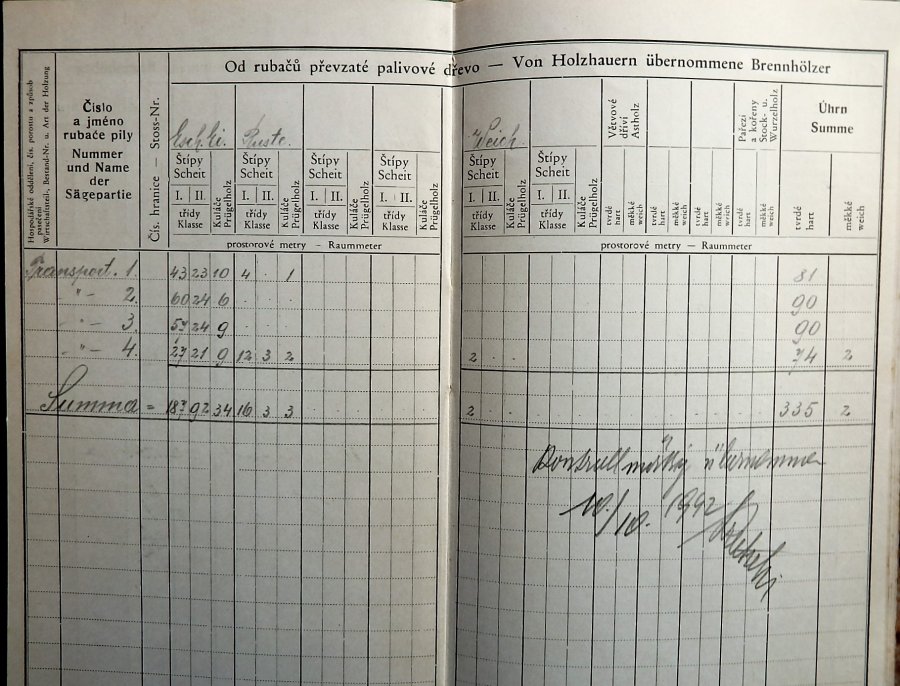 Od rubačů převzaté palivové dřevo — Von Holzhauern übernommene Brennhölzer
Hospodářské oddělení, čís. porostu a způsob
Wirtschaftsteil., Bestand-Nr. u. Art der Holzung
Číslo
a jméno
rubače pily
Nummer
und Name
der
Sägepartie
Čís. hranice — Stoss-Nr.
Štípy
Scheit
I. II.
třídy
Klasse
Kuláče
Prügelholz
Ruste.
Štípy
Scheit
I. II.
třídy
Klasse
Kuláče
Prügelholz
Štípy
Scheit
I. II.
třídy
Klasse
Kuláče
Prügelholz
Štípy
Scheit
I. II.
třídy
Klasse
Kuláče
Prügelholz
Weich.
Štípy
Scheit
I. II.
třídy
Klasse
Kuláče
Prügelholz
Štípy
Scheit
I. II.
třídy
Klasse
Kuláče
Prügelholz
Větvové
dříví
Astholz
tvrdé
hart
měkké
weich
tvrdé
hart
měkké
weich
tvrdé
hart
měkké
weich
Pařezí
a kořeny
Stock- u.
Wurzelholz
tvrdé
hart
měkké
weich
Úhrn
Summe
tvrdé
hart
měkké
weich
prostorové metry — Raummeter
prostorové metry — Raummeter
Transport. 1. 43 23 10 4 · 1 81
-"- 2. 60 24 6 · · · 90
-"- 3. 57 24 9 · · · 90
-"- 4. 27 21 9 12 3 2 2 · · 74 2
Summa = 187 92 34 16 3 3 2 · · 335 2
übernommen
10./10. 1942